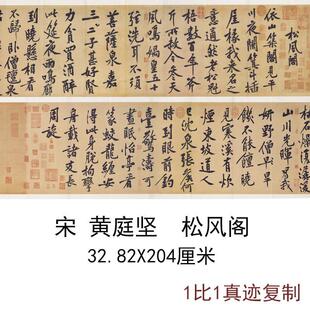 松風閣
依山築閣見平
川夜闌箕斗插
屋椽我來名之
意適然老松
斤所赦今參天
風鳴媧皇五十
弦洗耳不須
菩薩泉嘉
二三子甚好賢
力貧買酒醉
此筵夜雨鳴廊
到曉懸相看
不歸臥僧氈泉
枯石燥復潺湲
山川光輝為我
妍野僧旱飢
不能饘曉
見寒溪有炊
煙東坡道人
已沈泉張侯何
時到眼前釣
臺驚濤可
晝眠怡亭看
篆蛟龍纏安
得此身脫拘攣
舟載諸友長
周旋
宋 黄庭坚 松风阁
32.82X204厘米
1比1真迹复制